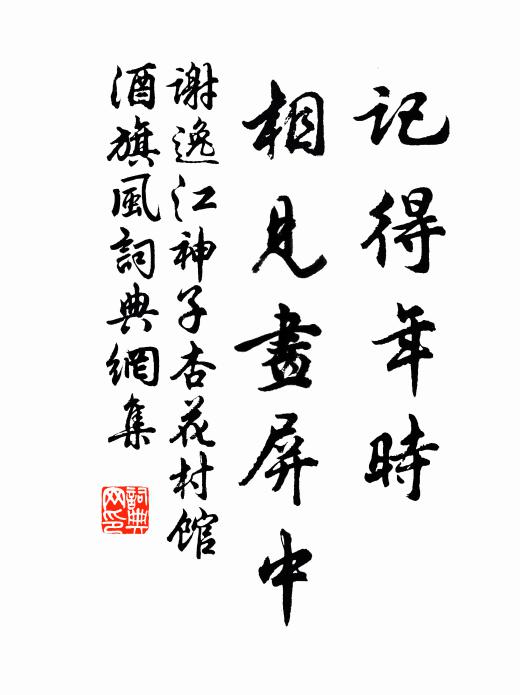 記得年時
相見畫屏中
謝逸江神子杏花村館
酒旗風詞典網集
詞典
网印